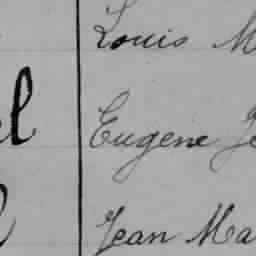 Louis M
el
Eugene Je
Jean Ma